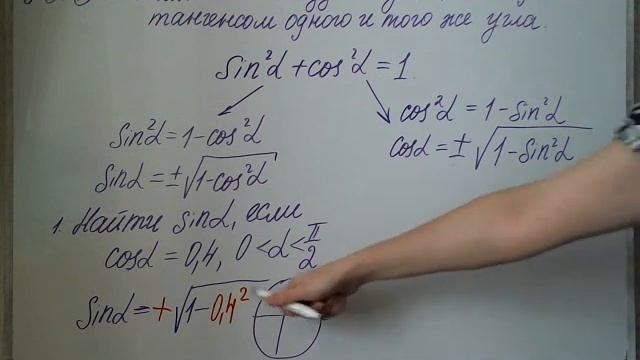 тангенсом одного и того же угла.
sin²α + cos²α = 1.
sin²α = 1 - cos²α
sinα = ± √1-cos²α
cos²α = 1 - sin²α
cosα = ± √1 - sin²α
1. Найти sinα, если
cosα = 0,4, 0 < α < π/2
sinα = + √1 - 0,4²